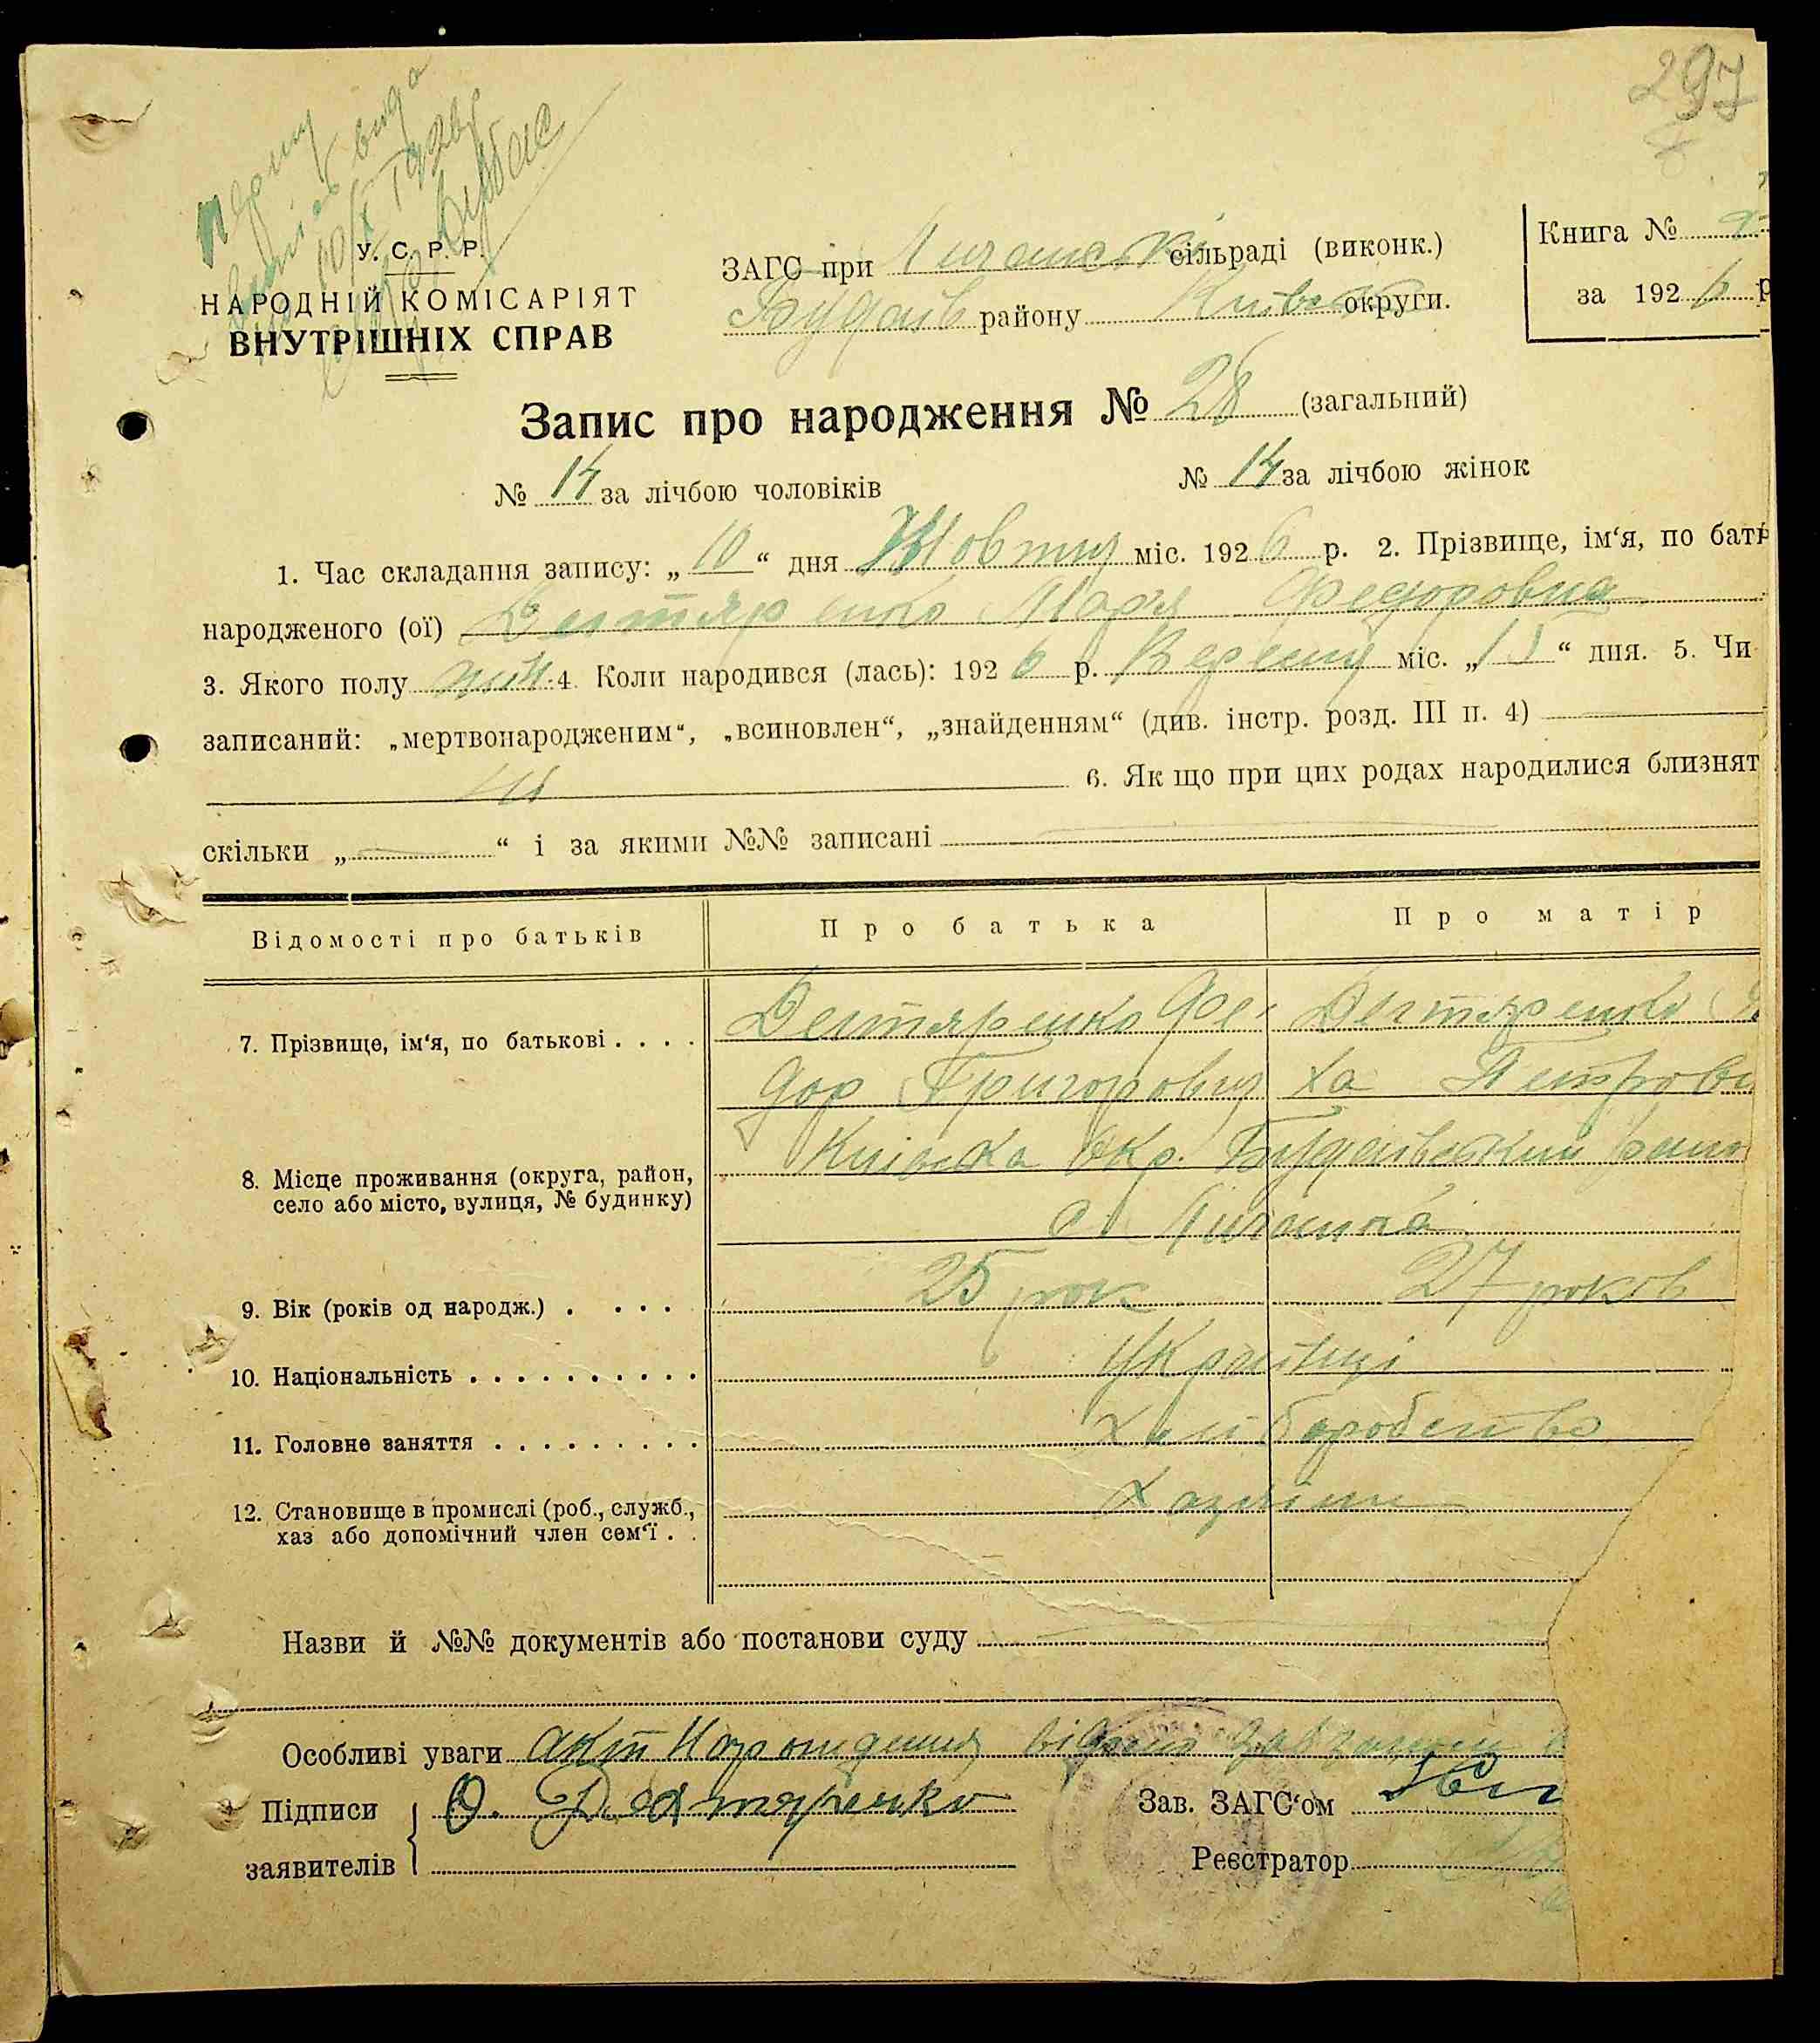 297
У. С. Р. Р.
НАРОДНІЙ КОМІСАРІЯТ
ВНУТРІШНІХ СПРАВ
ЗАГС при сільраді (виконк.)
району округи.
Книга №
за 1926 р
Запис про народження № 28 (загальний)
№ 14 за лічбою чоловіків
№ 14 за лічбою жінок
1. Час складання запису: „ 10 “ дня Жовтня міс. 1926 р. 2. Прізвище, ім‘я, по бать
народженого (ої) Дегтяренко Марʼя Федоровна
3. Якого полу жін. 4. Коли народився (лась): 1926 р. міс. „ 15 “ дня. 5. Чи
записаний: „мертвонародженим“, „всиновлен“, „знайденням“ (див. інстр. розд. III п. 4)
ні
6. Як що при цих родах народилися близнят
скільки „ “ і за якими №№ записані
Відомості про батьків Про батька Про матір
7. Прізвище, ім‘я, по батькові . . . . Дегтяренко Фе- Дегтяренко
дор Григорович ха Петровн
8. Місце проживання (округа, район,
село або місто, вулиця, № будинку)
Київска окр. Будаївский
с.
9. Вік (років од народж.) . . . . 25 рок 27 роков
10. Національність . . . . . . . . . . Украінці
11. Головне заняття . . . . . . . . . Хліборобство
12. Становище в промислі (роб., служб.,
хаз або допомічний член сем‘ї . .
Назви й №№ документів або постанови суду
Особливі уваги акт
Підписи О. Дегтяренко
заявителів
Зав. ЗАГС‘ом
Реєстратор